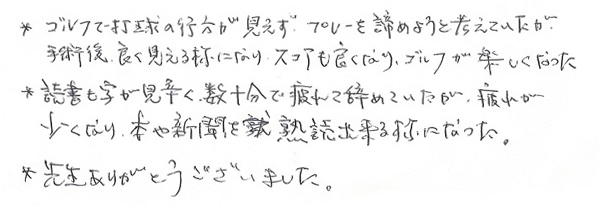 * ゴルフで打球の行方が見えず プレーを諦めようと考えていたが、
手術後、良く見える様になり、スコアも良くなり、ゴルフが楽しくなった
* 読書も字が見辛く、数十分で疲れて辞めていたが、疲れが
少くなり、本や新聞を熟読出来る様になった。
* 先生ありがとうございました。